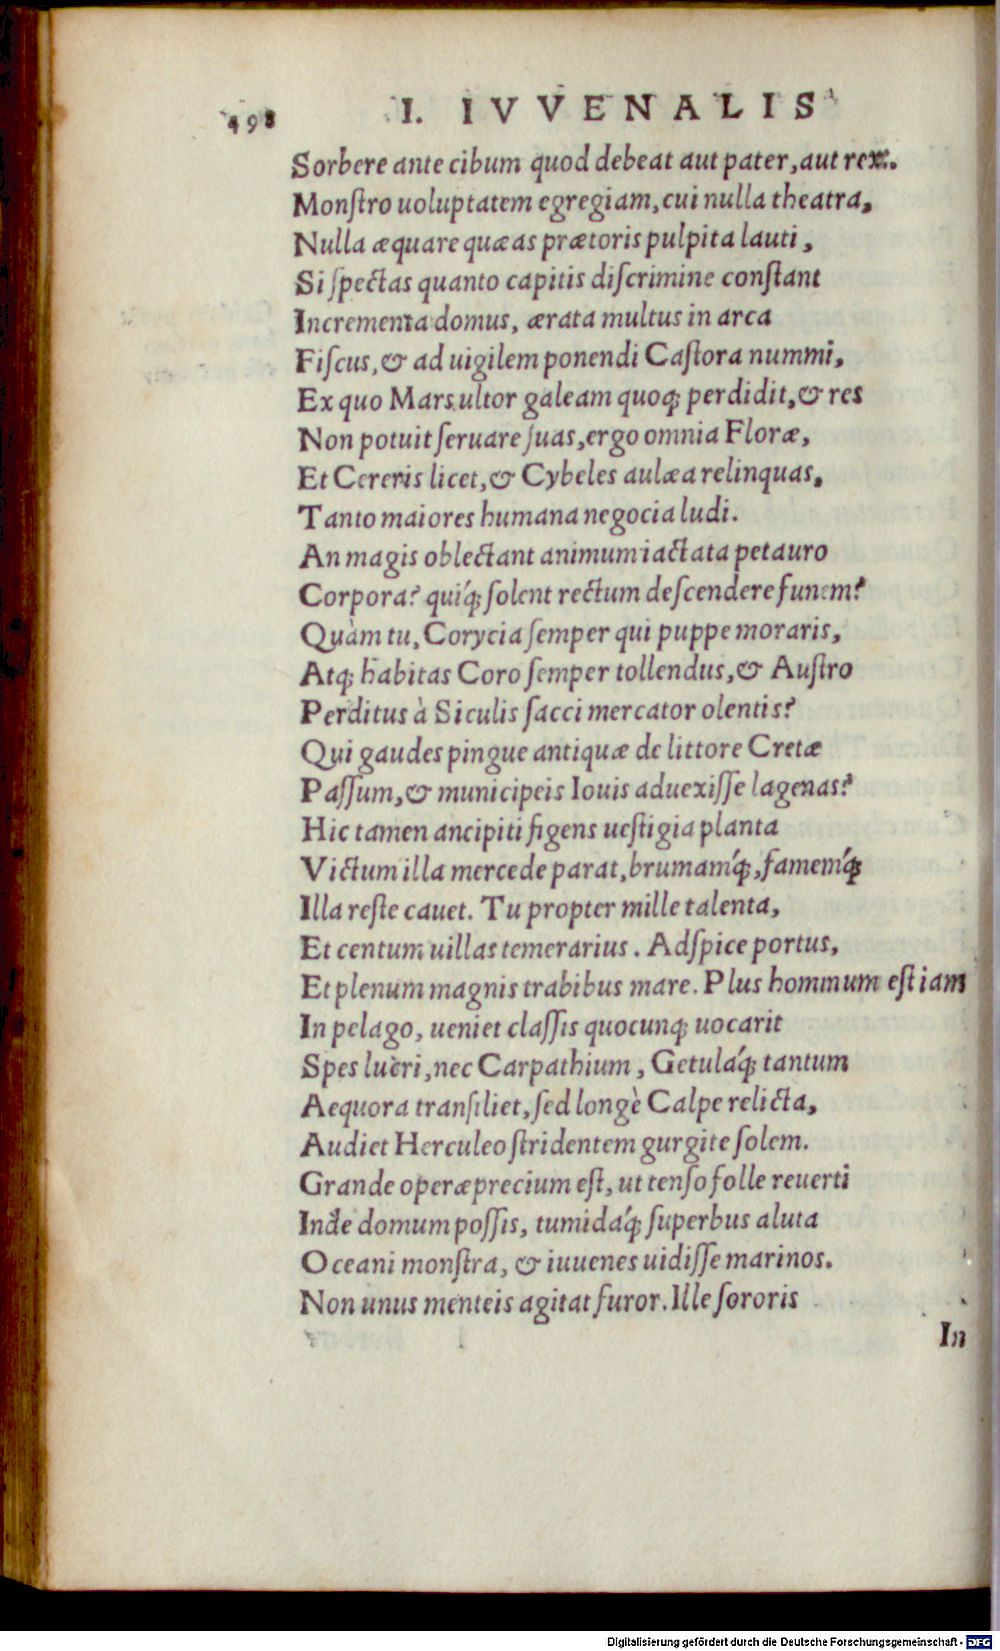 498 I. IVVENALIS
Sorbere ante cibum quod debeat aut pater, aut rex.
Monſtro uoluptatem egregiam, cui nulla theatra,
Nulla æquare queas prætoris pulpita lauti,
Si ſpectas quanto capitis diſcrimine conſtant
Incrementa domus, ærata multus in arca
Fiſcus, & ad uigilem ponendi Caſtora nummi,
Ex quo Mars ultor galeam quoq; perdidit, & res
Non potuit ſeruare ſuas, ergo omnia Floræ,
Et Cereris licet, & Cybeles aulæa relinquas,
Tanto maiores humana negocia ludi.
An magis oblectant animum iactata petauro
Corpora? quíq; ſolent rectum deſcendere funem?
Quàm tu, Corycia ſemper qui puppe moraris,
Atq; habitas Coro ſemper tollendus, & Auſtro
Perditus à Siculis ſacci mercator olentis?
Qui gaudes pingue antiquæ de littore Cretæ
Paſſum, & municipeis Iouis aduexiſſe lagenas?
Hic tamen ancipiti figens ueſtigia planta
Victum illa mercede parat, brumamq́;, famemq́;
Illa reſte cauet. Tu propter mille talenta,
Et centum uillas temerarius. Adſpice portus,
Et plenum magnis trabibus mare. Plus hominum eſt iam
In pelago, ueniet claſſis quocunq; uocarit
Spes lucri, nec Carpathium, Getulaq́; tantum
Aequora tranſiliet, ſed longè Calpe relicta,
Audiet Herculeo ſtridentem gurgite ſolem.
Grande operæprecium eſt, ut tenſo folle reuerti
Inde domum poſſis, tumidaq́; ſuperbus aluta
Oceani monſtra, & iuuenes uidiſſe marinos.
Non unus menteis agitat furor. Ille ſororis
In
Digitalisierung gefördert durch die Deutsche Forschungsgemeinschaft - DFG